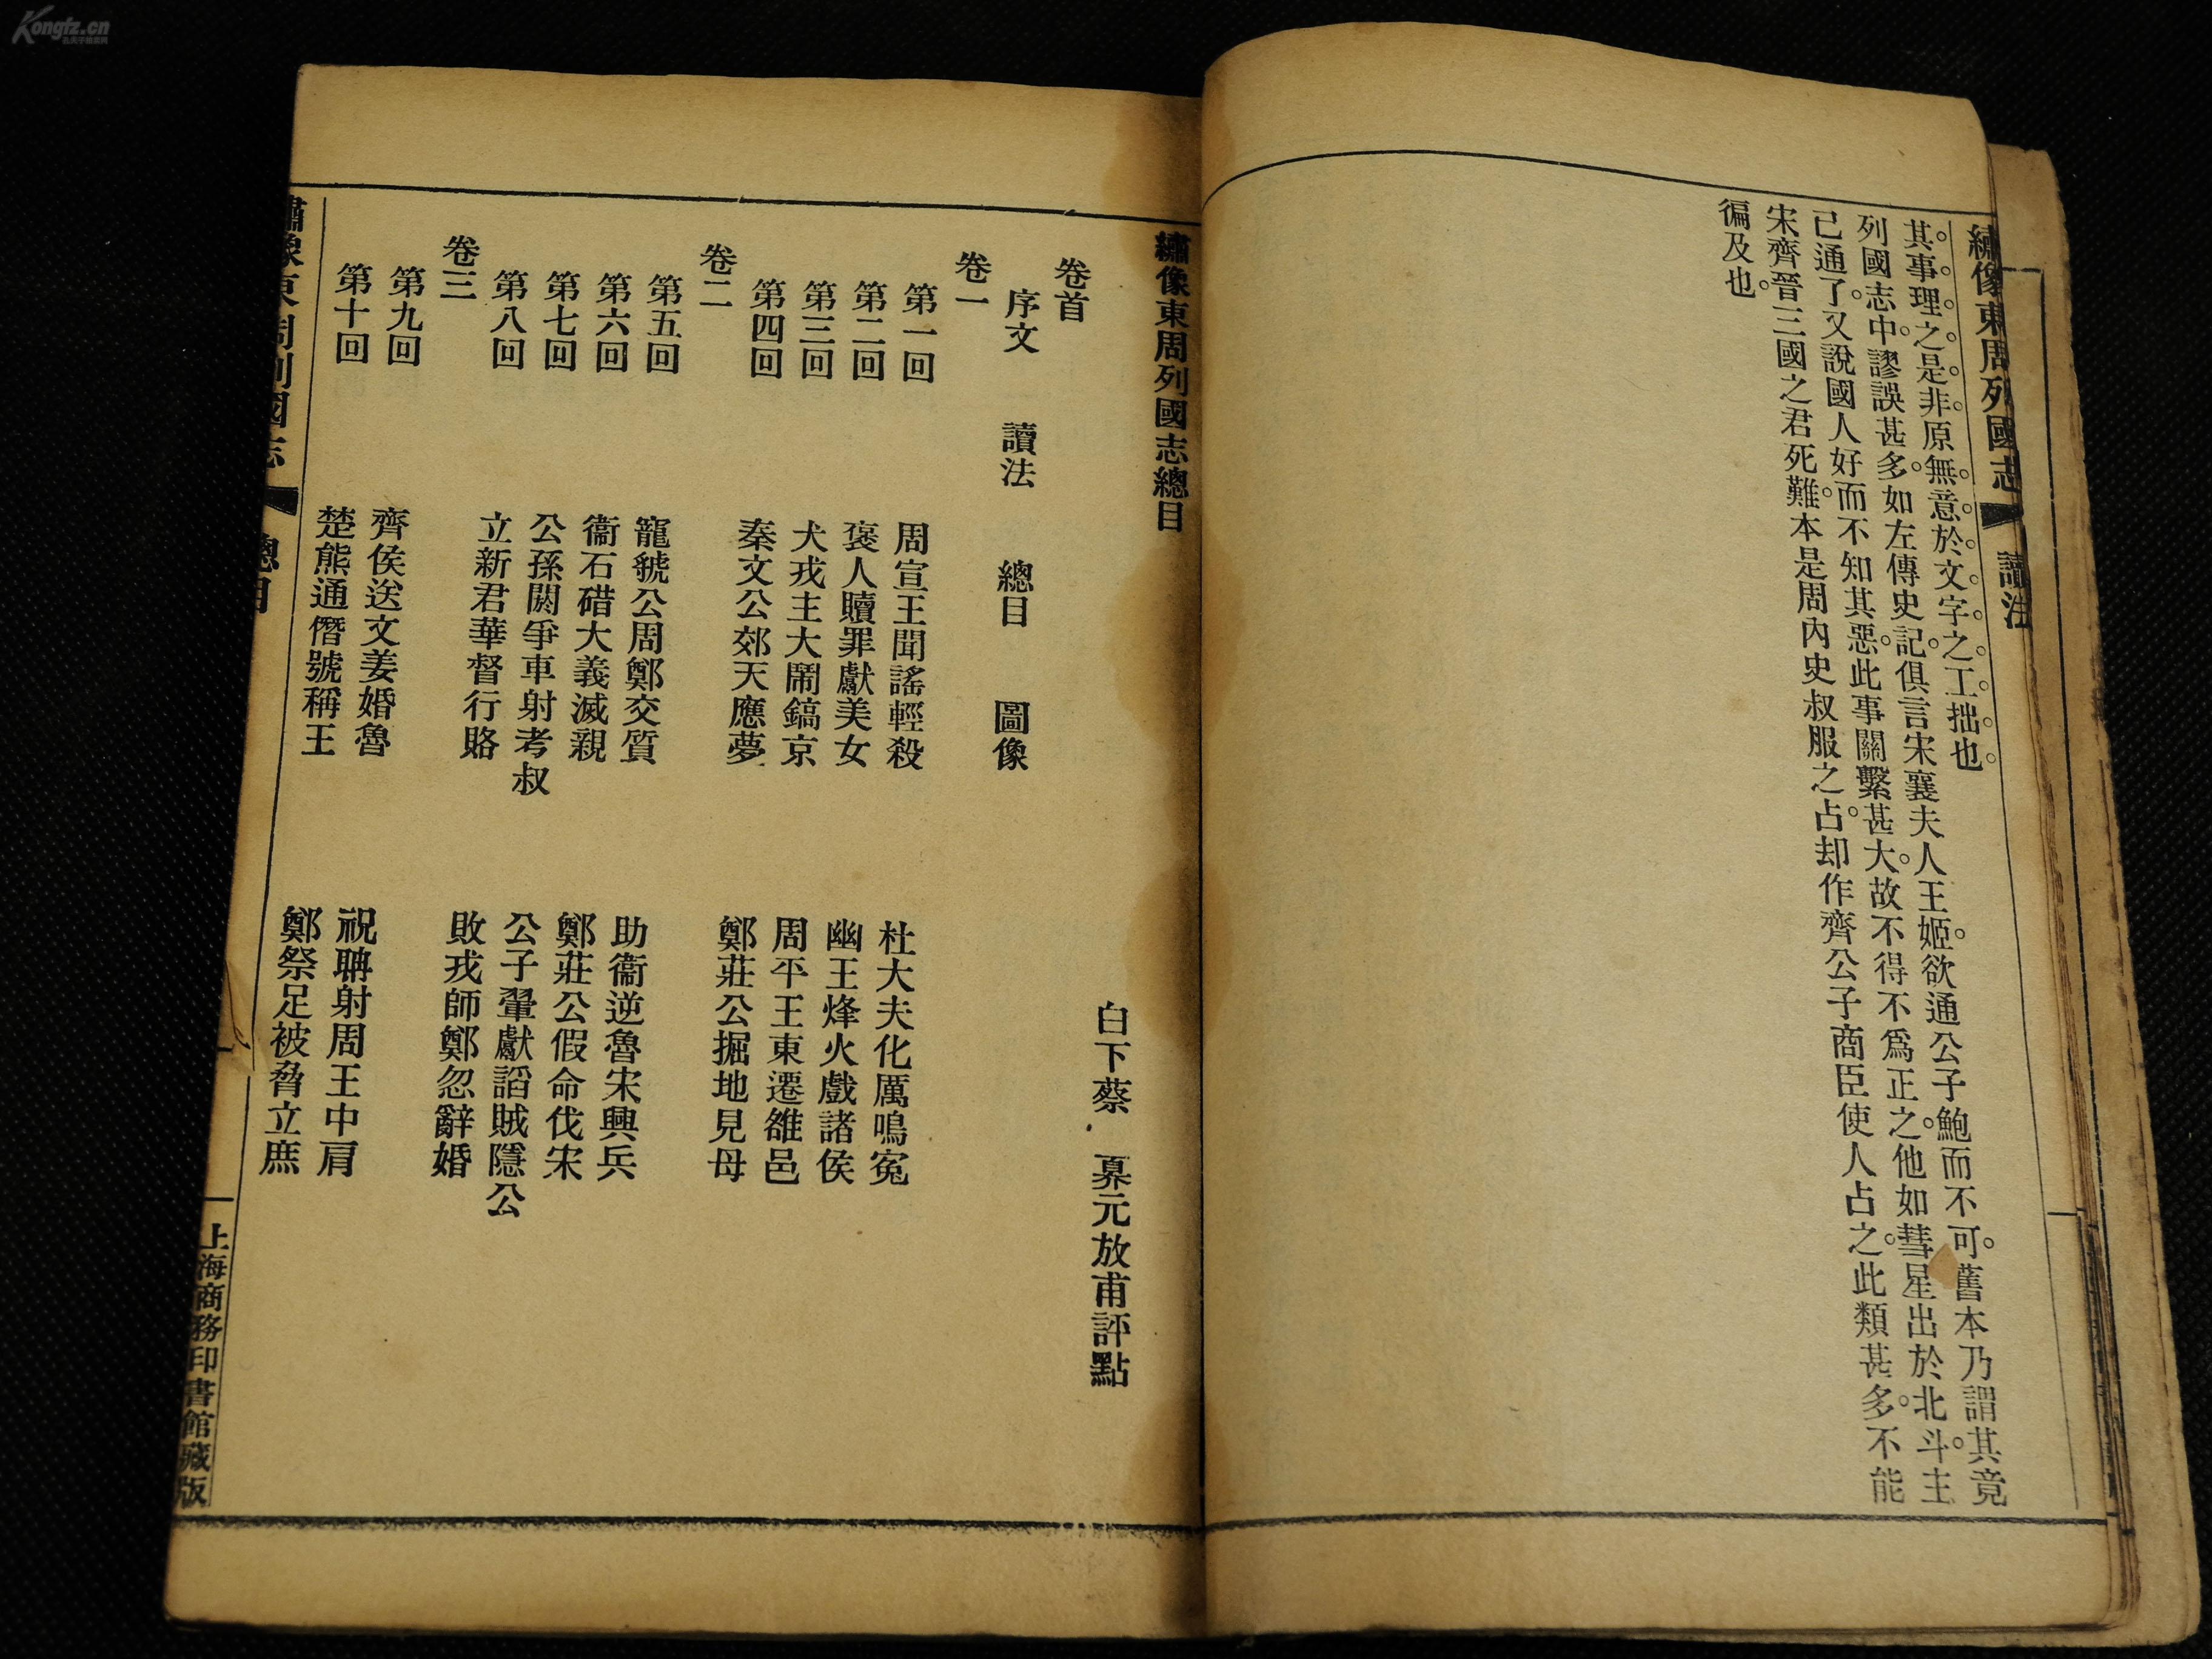 Kongfz.cn
孔夫子舊書网
繡像東周列國志
讀法
其事理之是非。原無意於文字之工拙也。
列國志中。謬誤甚多。如左傳史記。俱言宋襄夫人王姬。欲通公子鮑而不可。舊本乃謂其竟
已通了。又說國人好而不知其惡。此事關繫甚大。故不得不爲正之。他如彗星出於北斗。主
宋齊晉三國之君死難。本是周內史叔服之占。却作齊公子商臣使人占之。此類甚多。不能
徧及也。
繡像東周列國志總目
白下蔡 奡元放甫評點
卷首
序文 讀法 總目 圖像
卷一
第一回 周宣王聞謠輕殺 杜大夫化厲鳴冤
第二回 褒人贖罪獻美女 幽王烽火戲諸侯
第三回 犬戎主大鬧鎬京 周平王東遷雒邑
第四回 秦文公郊天應夢 鄭莊公掘地見母
卷二
第五回 寵虢公周鄭交質 助衞逆魯宋興兵
第六回 衞石碏大義滅親 鄭莊公假命伐宋
第七回 公孫閼爭車射考叔 公子翬獻諂賊隱公
第八回 立新君華督行賂 敗戎師鄭忽辭婚
卷三
第九回 齊侯送文姜婚魯 祝聃射周王中肩
第十回 楚熊通僭號稱王 鄭祭足被脅立庶
繡像東周列國志
總目
上海商務印書館藏版